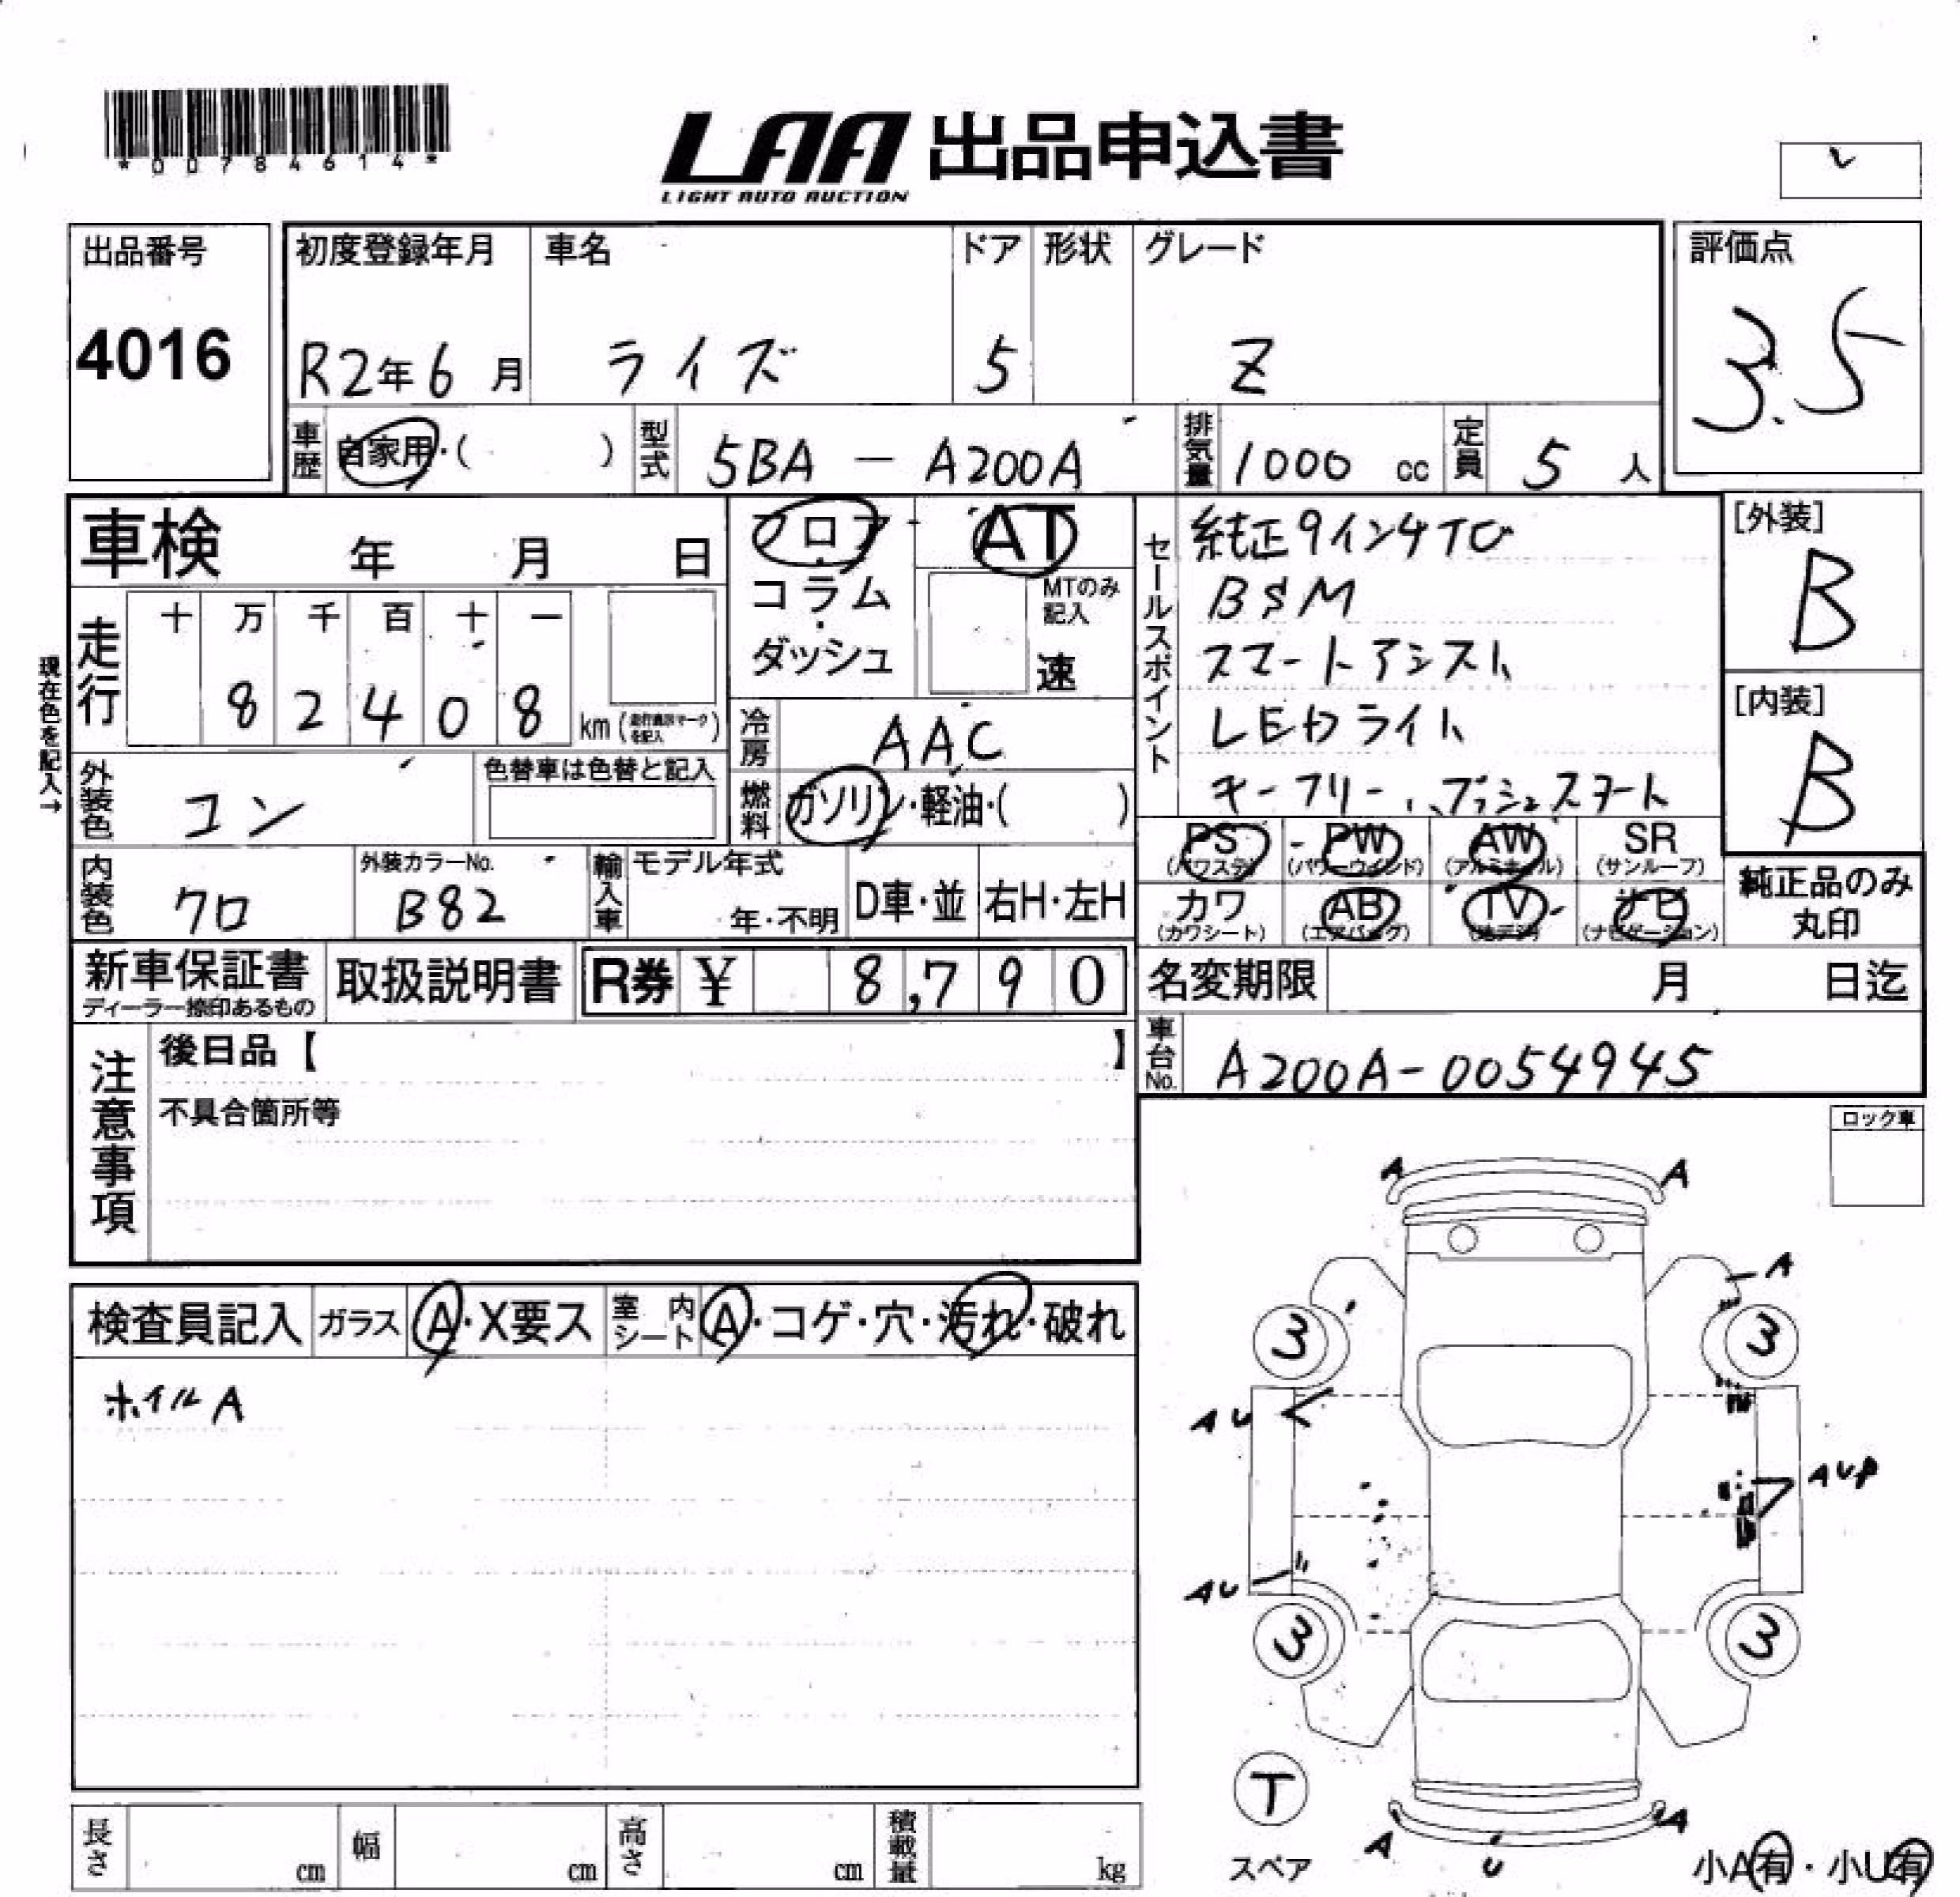 *00784614*
LAA 出品申込書
LIGHT AUTO AUCTION
出品番号
4016
初度登録年月 車名 ドア 形状 グレード
R2年6月 ライズ 5 Z
評価点
3.5
車歴 自家用・( ) 型式 5BA - A200A 排気量 1000 cc 定員 5 人
車検 年 月 日
フロア・コラム・ダッシュ
AT
MTのみ記入
速
現在色を記入→
走行 十 万 千 百 十 一
8 2 4 0 8 km (走行表示マークを記入)
冷房 AAC
外装色 コン 色替車は色替と記入
燃料 ガソリン・軽油・( )
内装色 クロ 外装カラーNo. B82
輸入車 モデル年式 年・不明 D車・並 右H・左H
セールスポイント
純正9インチTV
BSM
スマートアシスト
LEDライト
キーフリー、プッシュスタート
[外装]
B
[内装]
B
PS (パワステ) PW (パワーウインド) AW (アルミホイル) SR (サンルーフ)
カワ (カワシート) AB (エアバッグ) TV (地デジ) ナビ (ナビゲーション)
純正品のみ丸印
新車保証書 ディーラー捺印あるもの
取扱説明書
R券 ¥ 8,790
名変期限 月 日迄
車台No. A200A-0054945
注意事項
後日品【 】
不具合箇所等
ロック車
検査員記入 ガラス A・X要ス 室内シート A・コゲ・穴・汚れ・破れ
ホイルA
A A
A
3 3
AU
AUP
AU
3 3
T
スペア
A U A
小A有・小U有
長さ cm 幅 cm 高さ cm 積載量 kg